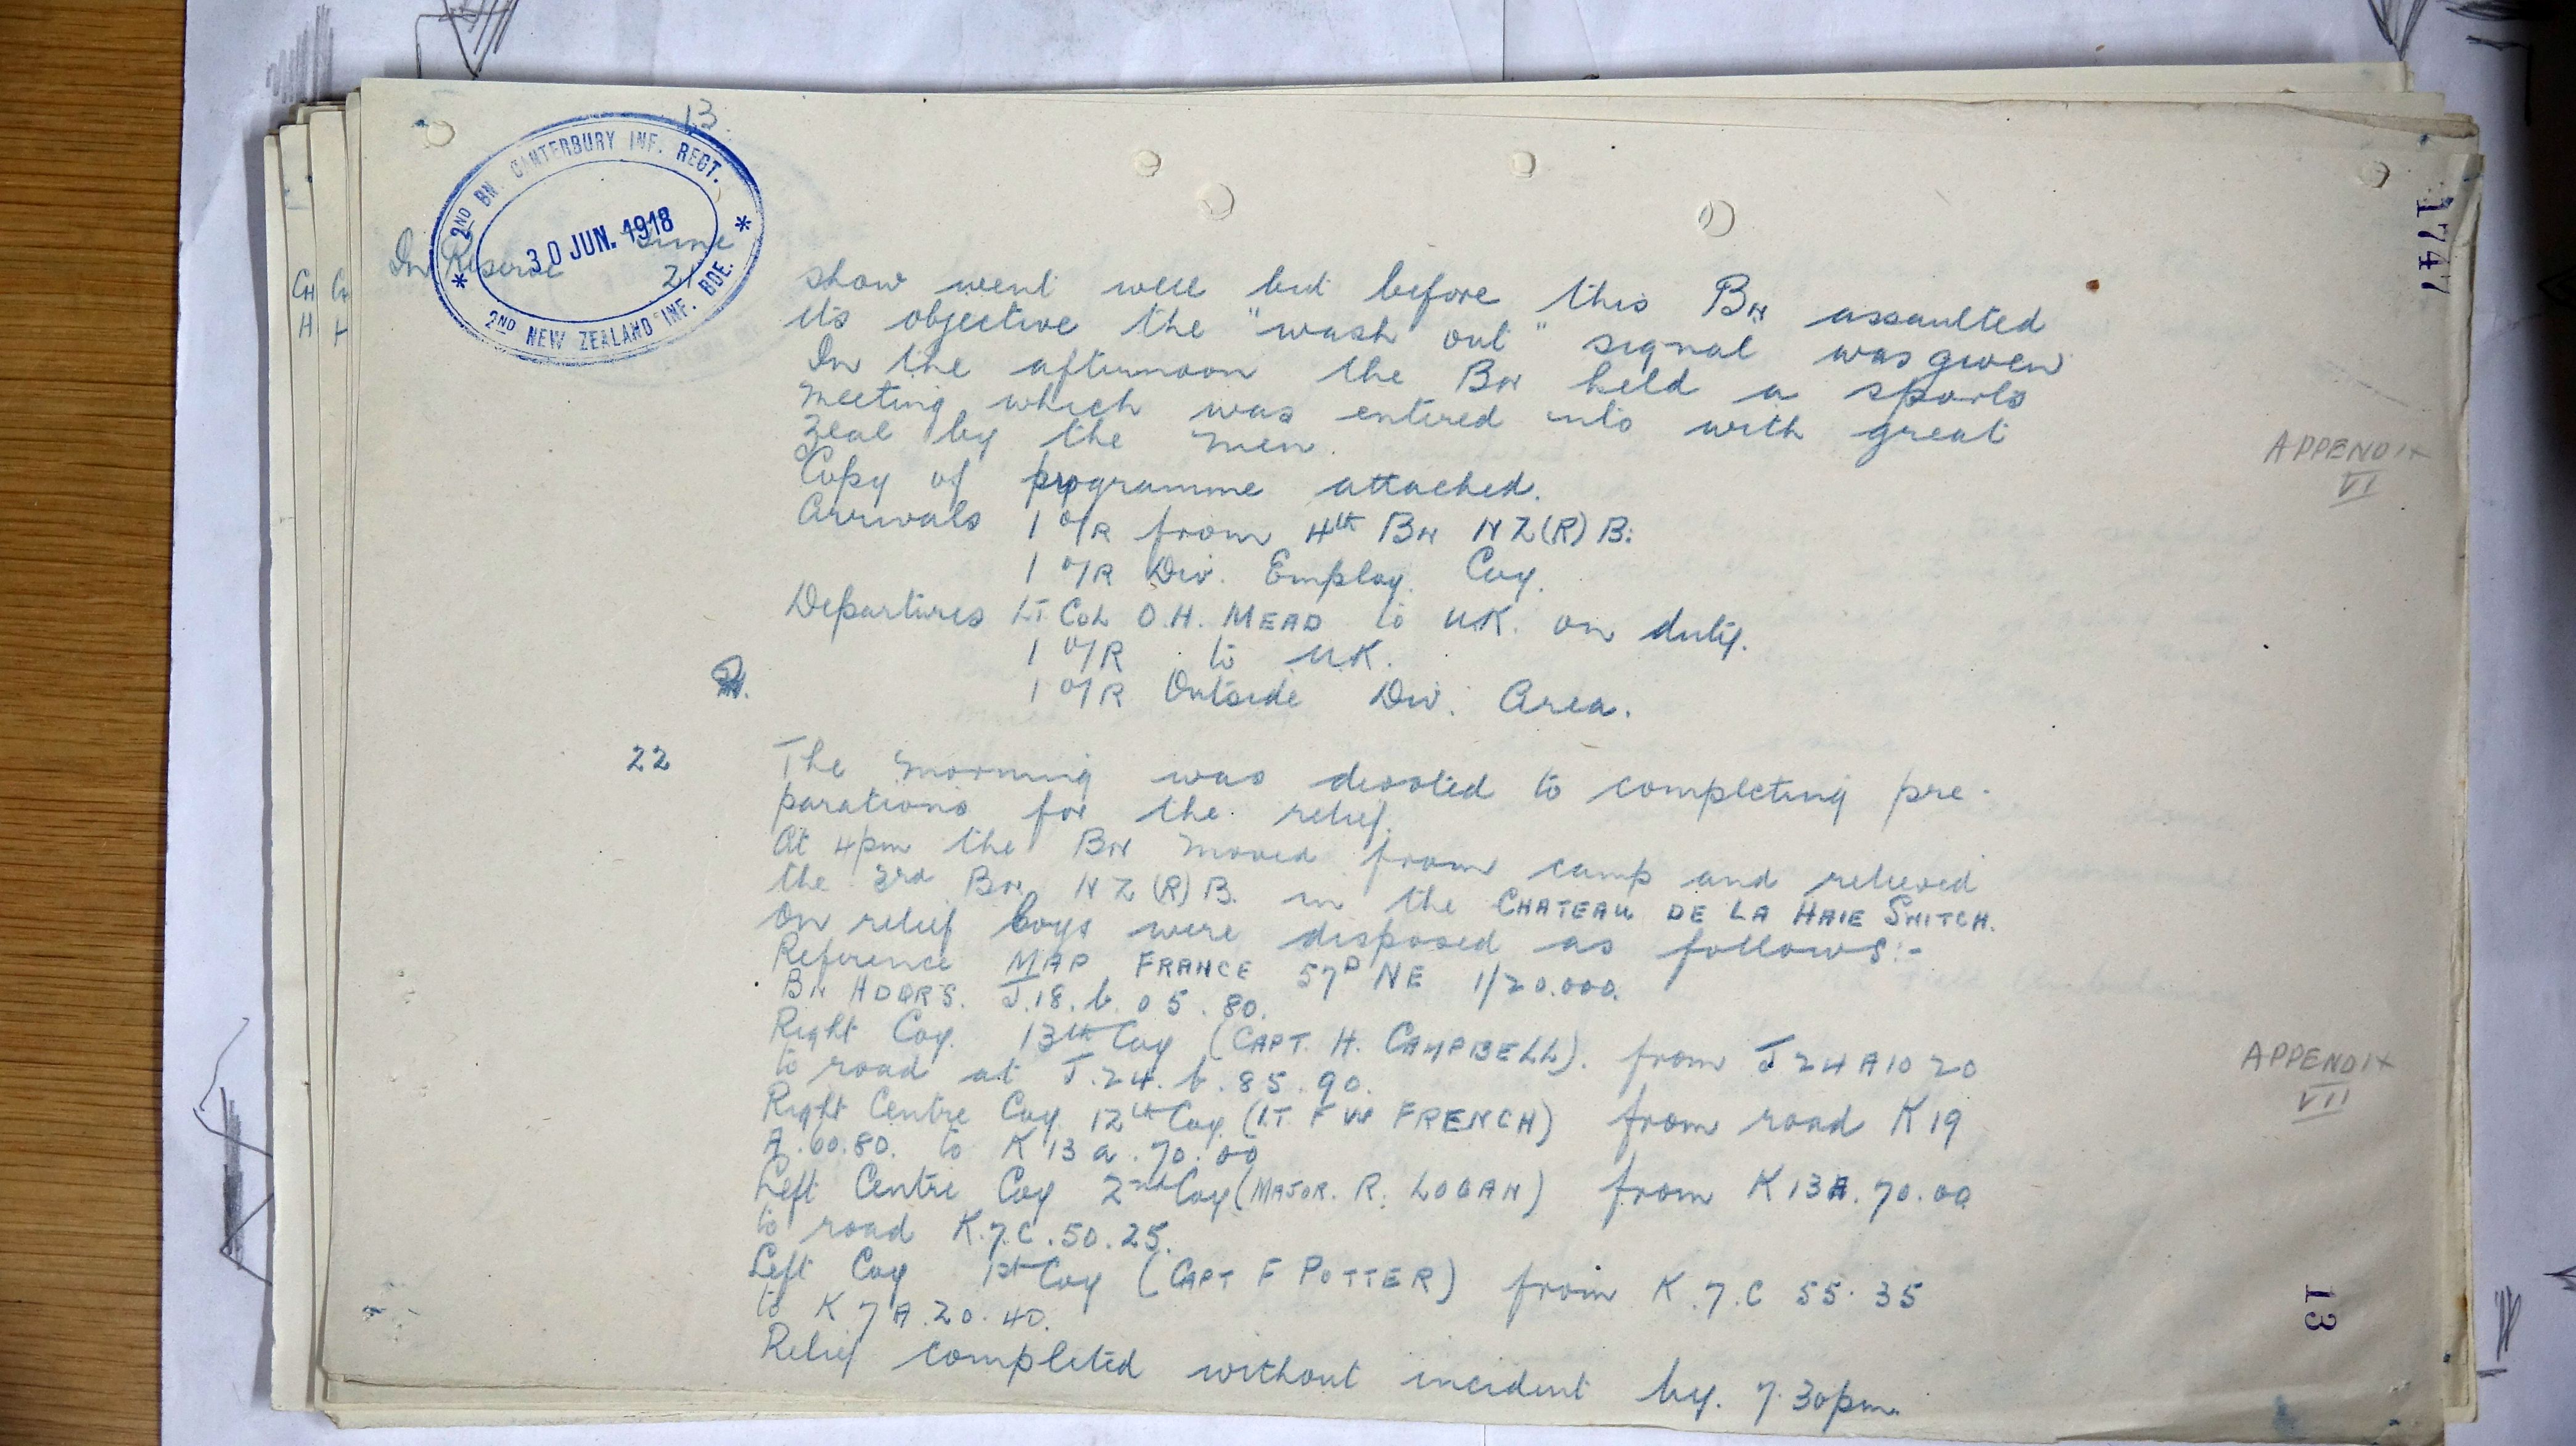 13.
2ND BN. CANTERBURY INF. REGT.
30 JUN. 1918
2ND NEW ZEALAND INF. BDE.
1747
In Reserve June
21 show went well but before this BN assaulted
its objective the "wash out" signal was given
In the afternoon the BN held a sports
meeting which was entered into with great
zeal by the men.
Copy of programme attached. APPENDIX
VI
Arrivals 1 O/R from 4th BN NZ(R)B:
1 O/R Div. Employ. Coy.
Departures LT. COL O.H. MEAD to UK. on duty.
1 O/R to UK.
1 O/R Outside Div. Area.
22 The morning was devoted to completing pre-
parations for the relief.
At 4pm the BN moved from camp and relieved
the 3rd BN. NZ(R)B. in the CHATEAU DE LA HAIE SWITCH.
On relief Coys were disposed as follows:-
Reference MAP FRANCE 57D NE 1/20.000.
BN HDQRS. J.18.b.05.80.
Right Coy. 13th Coy (CAPT. H. CAMPBELL). from J24A1020
to road at J.24.b.85.90. APPENDIX
VII
Right Centre Coy 12th Coy. (LT. F W FRENCH) from road K19
A.60.80. to K13a.70.00
Left Centre Coy 2nd Coy (MAJOR. R. LOGAN) from K13A.70.00
to road K.7.C.50.25.
Left Coy 1st Coy (CAPT F POTTER) from K.7.C 55.35
to K7A.20.40.
Relief completed without incident by. 7.30pm.
13
CH
H